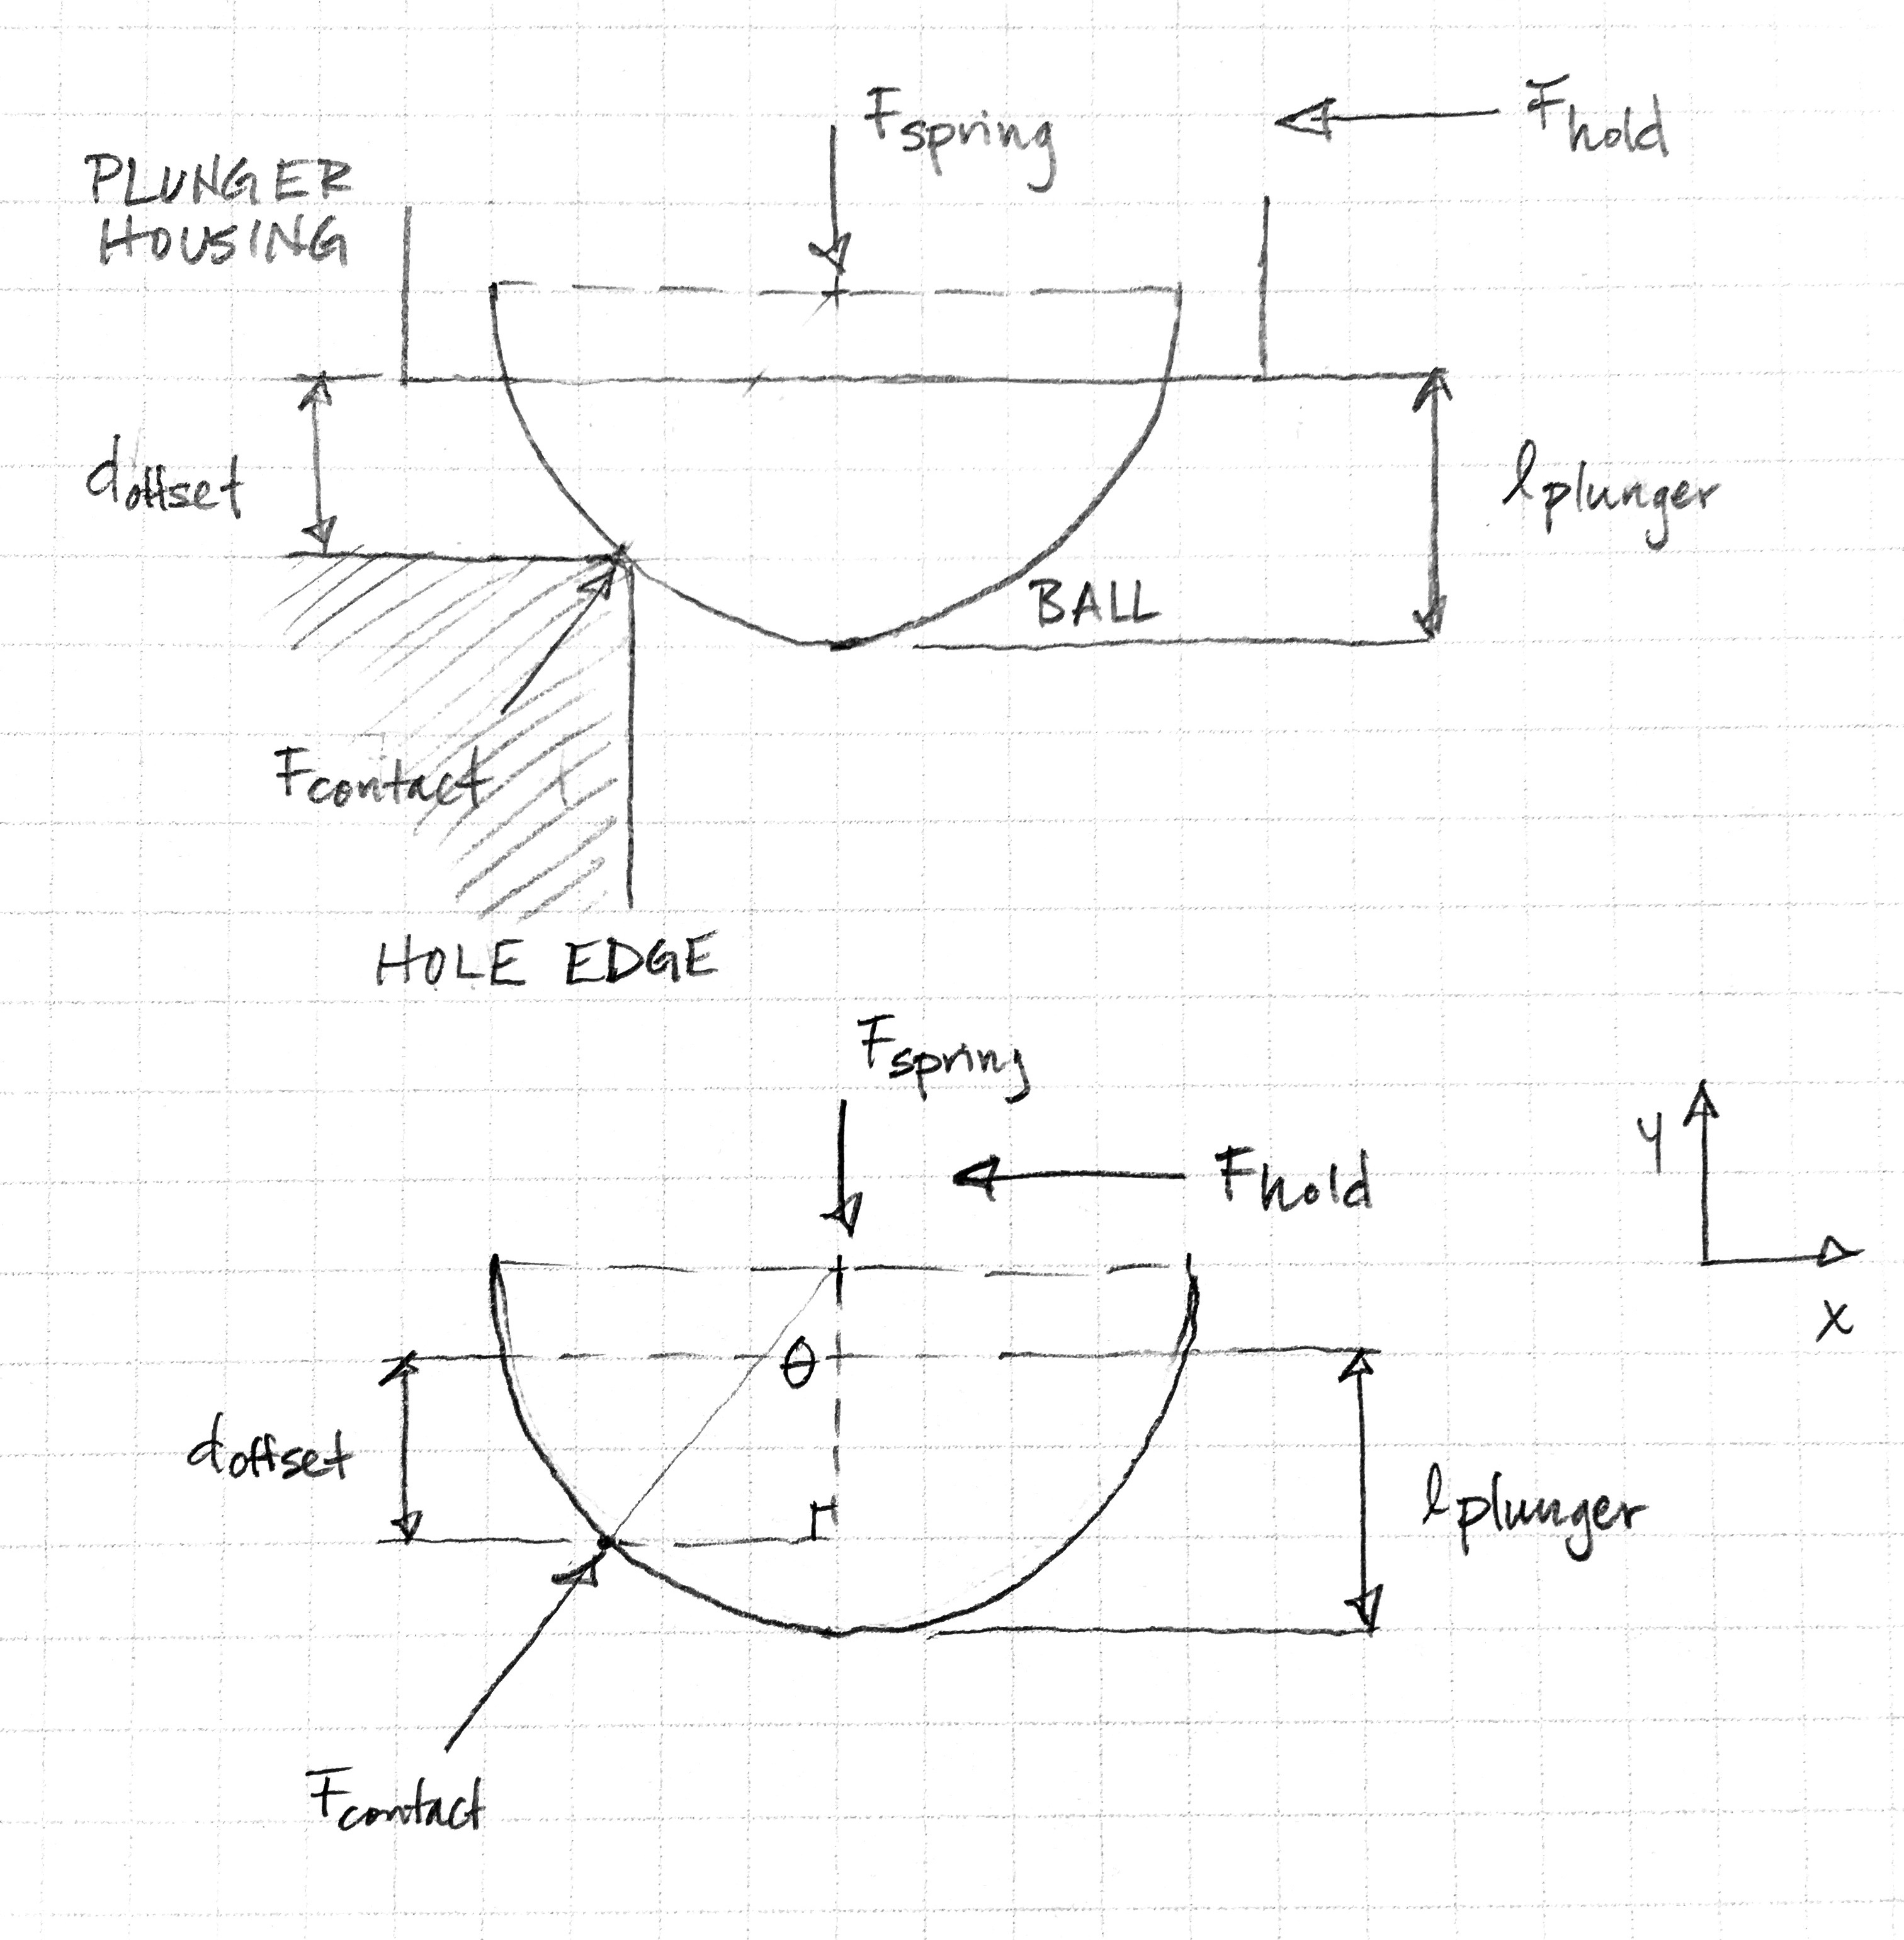 Fspring
Fhold
PLUNGER
HOUSING
doffset
lplunger
BALL
Fcontact
HOLE EDGE
Fspring
y
Fhold
x
θ
doffset
lplunger
Fcontact